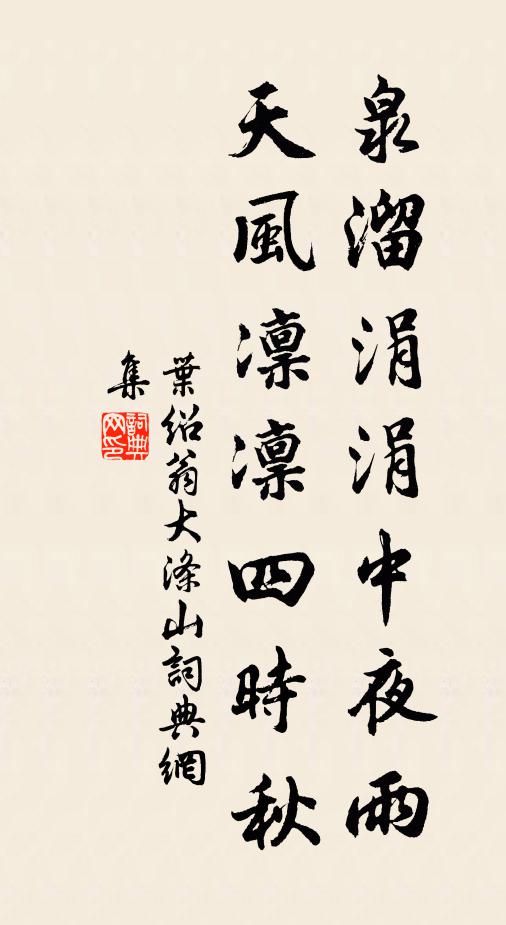 泉溜涓涓中夜雨
天風凛凛四時秋
葉紹翁大滌山詞典網
集
詞典
网印